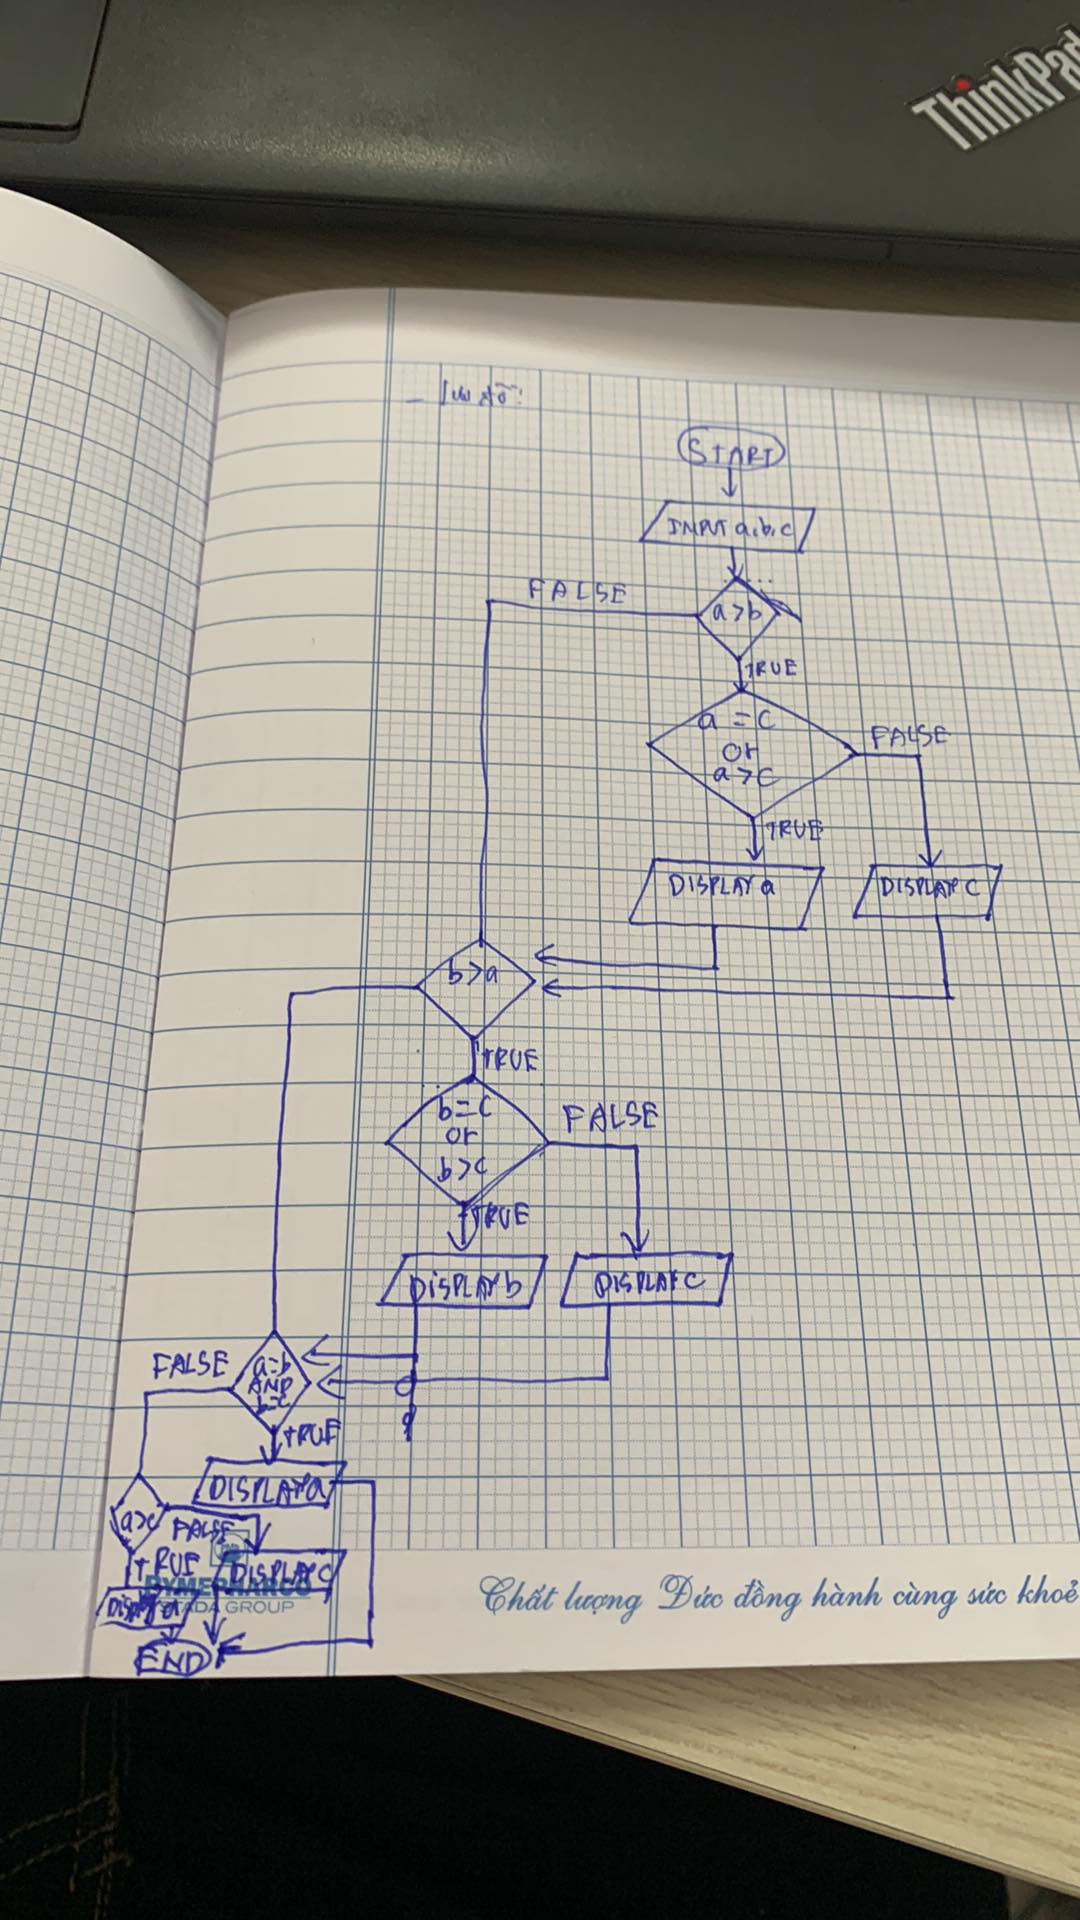 ThinkPad
_ lưu đồ:
START
INPUT a,b,c
FALSE
a>b
TRUE
a = c
or
a>c
FALSE
TRUE
DISPLAY a
DISPLAY c
b>a
TRUE
b=c
or
b>c
FALSE
TRUE
DISPLAY b
DISPLAY c
FALSE
a=b
AND
b=c
TRUE
DISPLAY a
a>c
FALSE
TRUE
DISPLAY c
PYMEPHARCO
DISPLAY a
STADA GROUP
END
Chất lượng Đức đồng hành cùng sức khoẻ